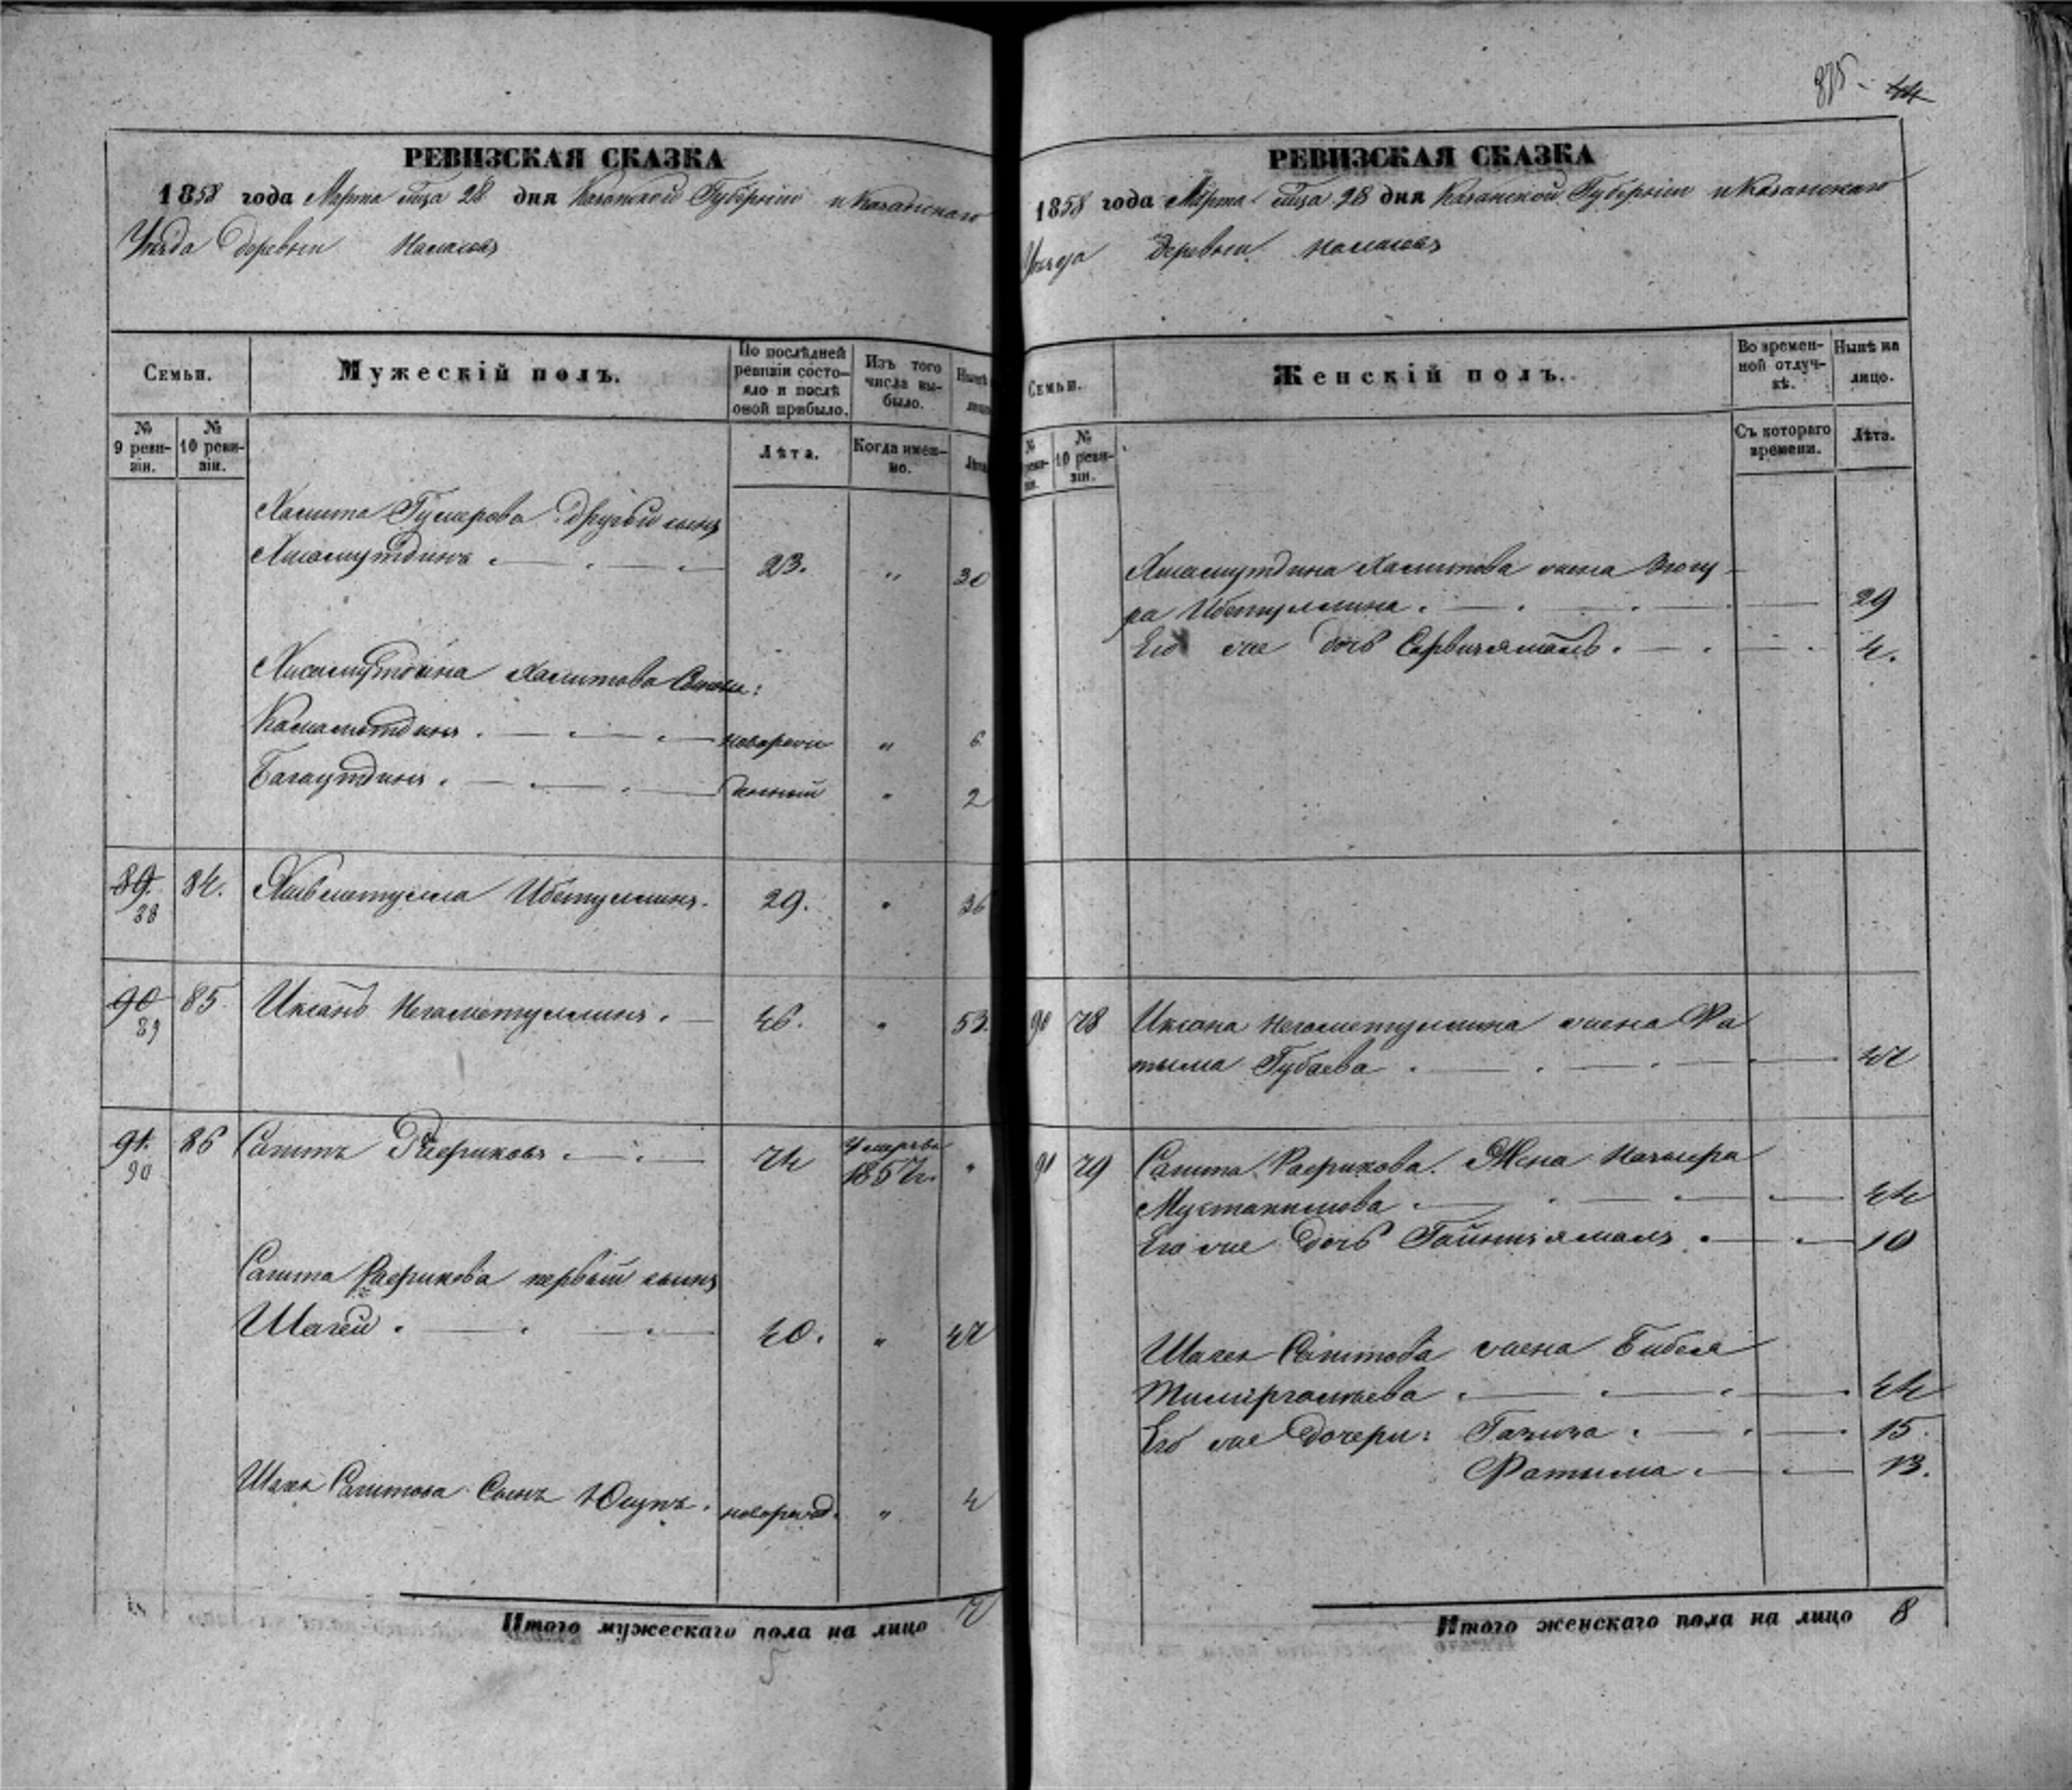 РЕВИЗСКАЯ СКАЗКА
1858 года Марта м-ца 28 дня Казанской Губернiи и Казанскаго
Уезда Деревни
Семьи.
Мужескiй полъ.
По послѣдней ревизiи состо-
яло и послѣ оной прибыло.
Изъ того числа вы-
было.
Нынѣ
лицо
№ 9 реви-
зiи.
№ 10 реви-
зiи.
Лѣта.
Когда имен-
но.
Лѣта
Хамита Гумерова другой сынъ
Хисамутдинъ 23. " 30
Хисамутдина Хамитова Сыновья:
Камалетдинъ новорож " 6
Багаутдинъ денный " 2
89. 88 84. Ибетуллинъ. 29. " 36
90 89 85. Иксанъ Негаметуллинъ. 46. " 53.
91. 90 86 Сагитъ Рафиковъ 74 Умеръ въ 1857 г. "
Сагита Рафикова первый сынъ
Шагей 40. " 47
Сагитова Сынъ Юсупъ. новорожд. " 4
Итого мужескаго пола на лицо 7
5
875 - 44
РЕВИЗСКАЯ СКАЗКА
1858 года Марта м-ца 28 дня Казанской Губернiи и Казанскаго
Уезда Деревни
Семьи.
Женскiй полъ.
Во времен-
ной отлуч-
кѣ.
Нынѣ на
лицо.
№ реви-
зiи.
№ 10 реви-
зiи.
Съ котораго
времени.
Лѣта.
Хисамутдина Хамитова жена Зюгу-
ра Ибетуллина. 29
Его же дочь Сарвиджамалъ. 4.
90 78 Иксана Негаметуллина жена Фа
тыма Губаева 47
91 79 Сагита Рафикова. Жена
Мустакимова 44
Его же дочь Гайниджамалъ 10
Сагитова жена Бибеля
44
Его же Дочери: Газиза 15.
Фатыма 13.
Итого женскаго пола на лицо 8